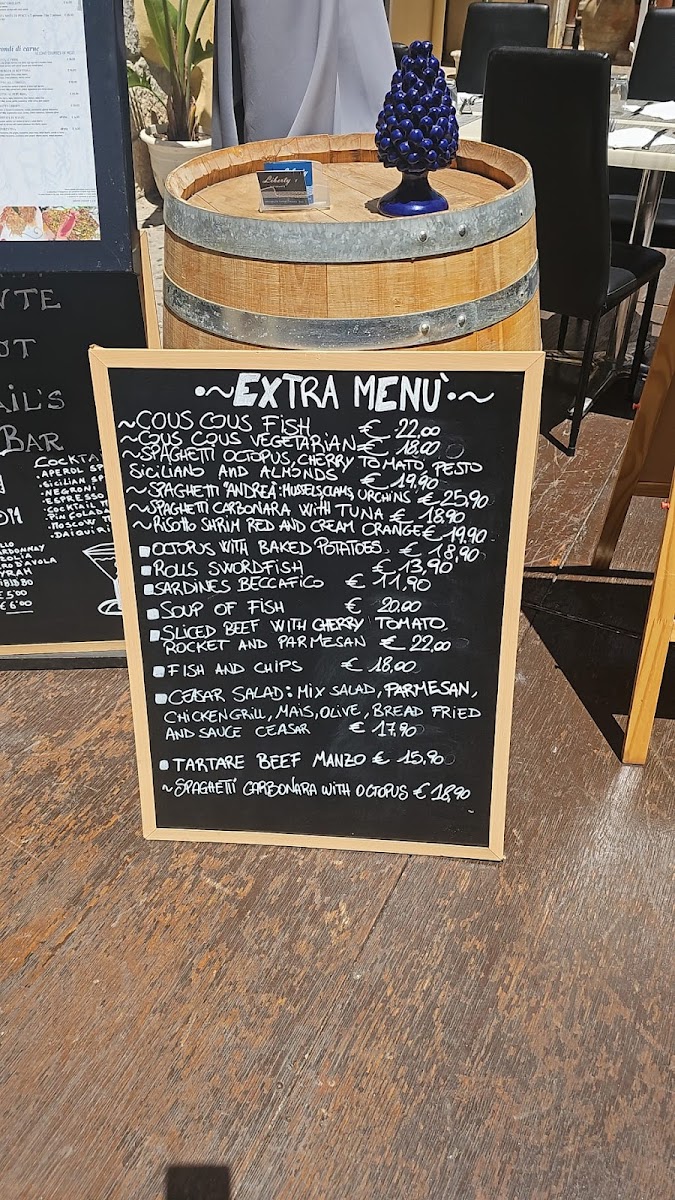 ondi di carne
Liberty's
NTE
OT
AIL'S
BAR
COCKTA
.APEROL SP
.SICILIAN SP
.NEGRONI
.ESPRESSO
.COCKTAIL
.PIN FOLA
.MOSCOW
.DAIQUIRI
~EXTRA MENU`~
~COUS COUS FISH € 22,00
~COUS COUS VEGETARIAN € 18.00
~SPAGHETTI OCTOPUS, CHERRY TOMATO, PESTO
SICILIANO AND ALMONDS € 19,90
~SPAGHETTI "ANDREA": MUSSELS, CLAMS, URCHINS € 25,90
~SPAGHETTI CARBONARA WITH TUNA € 18.90
~RISOTTO SHRIM RED AND CREAM ORANGE € 19,90
OCTOPUS WITH BAKED POTATOES € 18,90
ROLLS SWORDFISH € 13,90
SARDINES BECCAFICO € 11,90
SOUP OF FISH € 20.00
SLICED BEEF WITH CHERRY TOMATO,
ROCKET AND PARMESAN € 22,00
FISH AND CHIPS € 18,00
CEASAR SALAD: MIX SALAD, PARMESAN,
CHICKEN GRILL, MAIS, OLIVE, BREAD FRIED
AND SAUCE CEASAR € 17,90
TARTARE BEEF MANZO € 15,90
~SPAGHETTI CARBONARA WITH OCTOPUS € 18,90